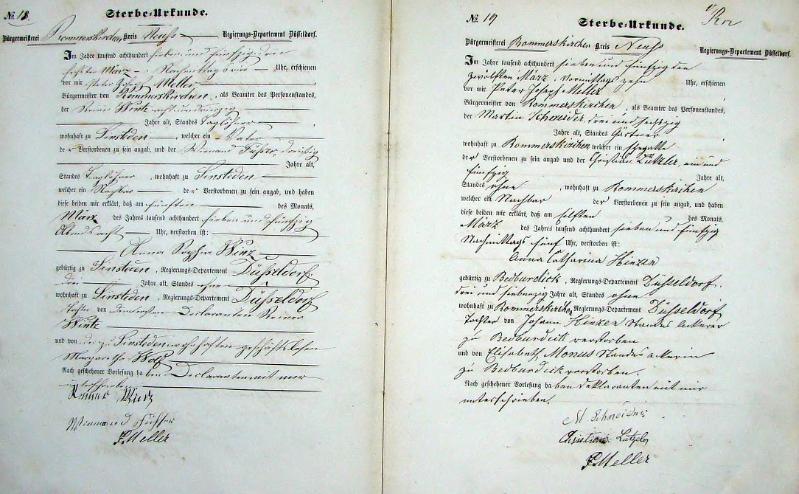 № 18.
Sterbe-Urkunde.
Bürgermeisterei Rommerskirchen Kreis Neuß Regierungs-Departement Düsseldorf.
Im Jahre tausend achthundert sieben und fünfzig den
März Uhr, erschienen
vor mir Peter Joseph Meller
Bürgermeister von Rommerskirchen, als Beamter des Personenstandes,
der
Jahre alt, Standes Taglöhner
wohnhaft zu Sinsteden, welcher ein Vater
der Verstorbenen zu sein angab, und der Wienand dreißig
Jahre alt,
Standes Taglöhner, wohnhaft zu Sinsteden
welcher ein Nachbar der Verstorbenen zu sein angab, und haben
diese beiden mir erklärt, daß am fünften des Monats
März des Jahres tausend achthundert sieben und fünfzig
Abends acht Uhr, verstorben ist:
Anna Sophia
gebürtig zu Sinsteden, Regierungs-Departement Düsseldorf
drei Jahre alt, Standes ohne
wohnhaft zu Sinsteden, Regierungs-Departement Düsseldorf
Tochter von Declaranten
und von zu Sinsteden
Margaretha
Nach geschehener Vorlesung haben Declaranten mit mir
Wienand
P. Meller
№ 19
Sterbe-Urkunde.
Bürgermeisterei Rommerskirchen Kreis Neuß Regierungs-Departement Düsseldorf.
Im Jahre tausend achthundert sieben und fünfzig den
zwölften März Vormittags zehn Uhr, erschienen
vor mir Peter Joseph Meller
Bürgermeister von Rommerskirchen, als Beamter des Personenstandes,
der Martin Schneider, drei und sechszig
Jahre alt, Standes Gärtner
wohnhaft zu Rommerskirchen welcher ein Ehegatte
der Verstorbenen zu sein angab, und der Christian Lützler, ein und
fünfzig Jahre alt,
Standes ohne, wohnhaft zu Rommerskirchen
welcher ein Nachbar der Verstorbenen zu sein angab, und haben
diese beiden mir erklärt, daß am elften des Monats
März des Jahres tausend achthundert sieben und fünfzig
Nachmittags fünf Uhr, verstorben ist:
Anna Catharina Hinzen
gebürtig zu Bedburdick, Regierungs-Departement Düsseldorf
drei und siebenzig Jahre alt, Standes ohne
wohnhaft zu Rommerskirchen, Regierungs-Departement Düsseldorf,
Tochter von Johann Hinzen Standes Ackerer
zu Bedburdick verstorben
und von Elisabeth Monus Standes Ackerin
zu Bedburdick verstorben.
Nach geschehener Vorlesung haben Deklaranten mit mir
unterschrieben.
M Schneider
Christian Lützler
P. Meller